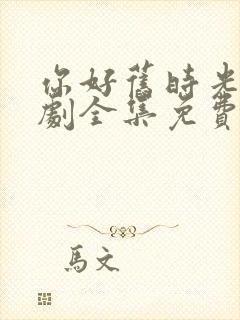 你好舊時光
劇全集免費
馬文